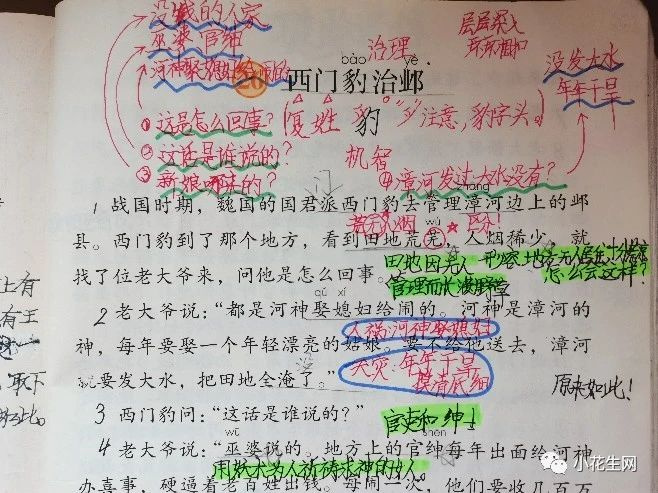 没钱的人家
巫婆 官绅
河神娶媳妇给闹的
治理
层层深入
环环相扣
没发大水
年年干旱
bào yè
26 西门豹治邺
①这是怎么回事?
②这话是谁说的?
③新娘哪来的?
④漳河发过大水没有?
复姓 豹 “豸”注意,豹字头。
豹
机智
zhāng
1 战国时期,魏国的国君派西门豹去管理漳河边上的邺
荒无人烟
wú
区分!
县。西门豹到了那个地方,看到田地荒芜,人烟稀少,就
田地因无人
管理而长满野草
形容地方无人居住,十分荒凉
怎么会这样?
找了位老大爷来,问他是怎么回事。
qǔ xí
2 老大爷说:“都是河神娶媳妇给闹的。河神是漳河的
人祸:河神娶媳妇
神,每年要娶一个年轻漂亮的姑娘。要不给他送去,漳河
没
天灾:年年干旱
摸清底细
就要发大水,把田地全淹了。”
原来如此!
3 西门豹问:“这话是谁说的?”
官吏和绅士
wū shēn
4 老大爷说:“巫婆说的。地方上的官绅每年出面给河神
用妖术为人祈祷求神的女人
办喜事,硬逼着老百姓出钱。每闹一次,他们要收几百万
上有
有王
取下
如此。
小花生网